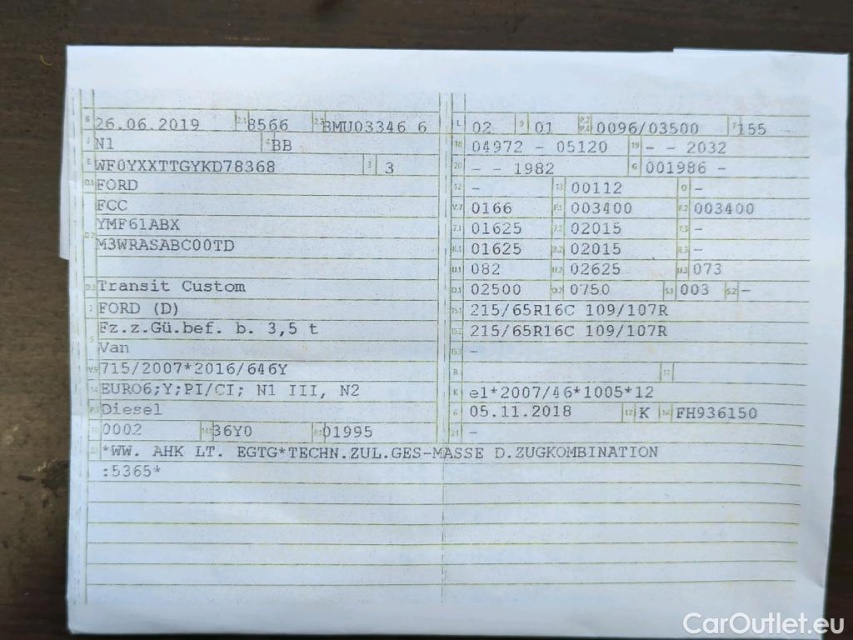 B 26.06.2019 2.1 8566 2.2 BMU03346 6
J N1 4 BB
E WF0YXXTTGYKD78368 3 3
D.1 FORD
FCC
D.2 YMF61ABX
M3WRASABC00TD
D.3 Transit Custom
2 FORD (D)
5 Fz.z.Gü.bef. b. 3,5 t
Van
V.9 715/2007*2016/646Y
14 EURO6;Y;PI/CI; N1 III, N2
P.3 Diesel
10 0002 14.1 36Y0 P.1 01995
L 02 9 01 P.2 P.4 0096/03500 T 155
18 04972 - 05120 19 - - 2032
20 - - 1982 G 001986 -
12 - 13 00112 Q -
V.7 0166 F.1 003400 F.2 003400
7.1 01625 7.2 02015 7.3 -
8.1 01625 8.2 02015 8.3 -
U.1 082 U.2 02625 U.3 073
O.1 02500 O.2 0750 S.1 003 S.2 -
15.1 215/65R16C 109/107R
15.2 215/65R16C 109/107R
15.3 -
R 11
K e1*2007/46*1005*12
6 05.11.2018 17 K 16 FH936150
21 -
22 *WW. AHK LT. EGTG*TECHN.ZUL.GES-MASSE D.ZUGKOMBINATION
:5365*
CarOutlet.eu